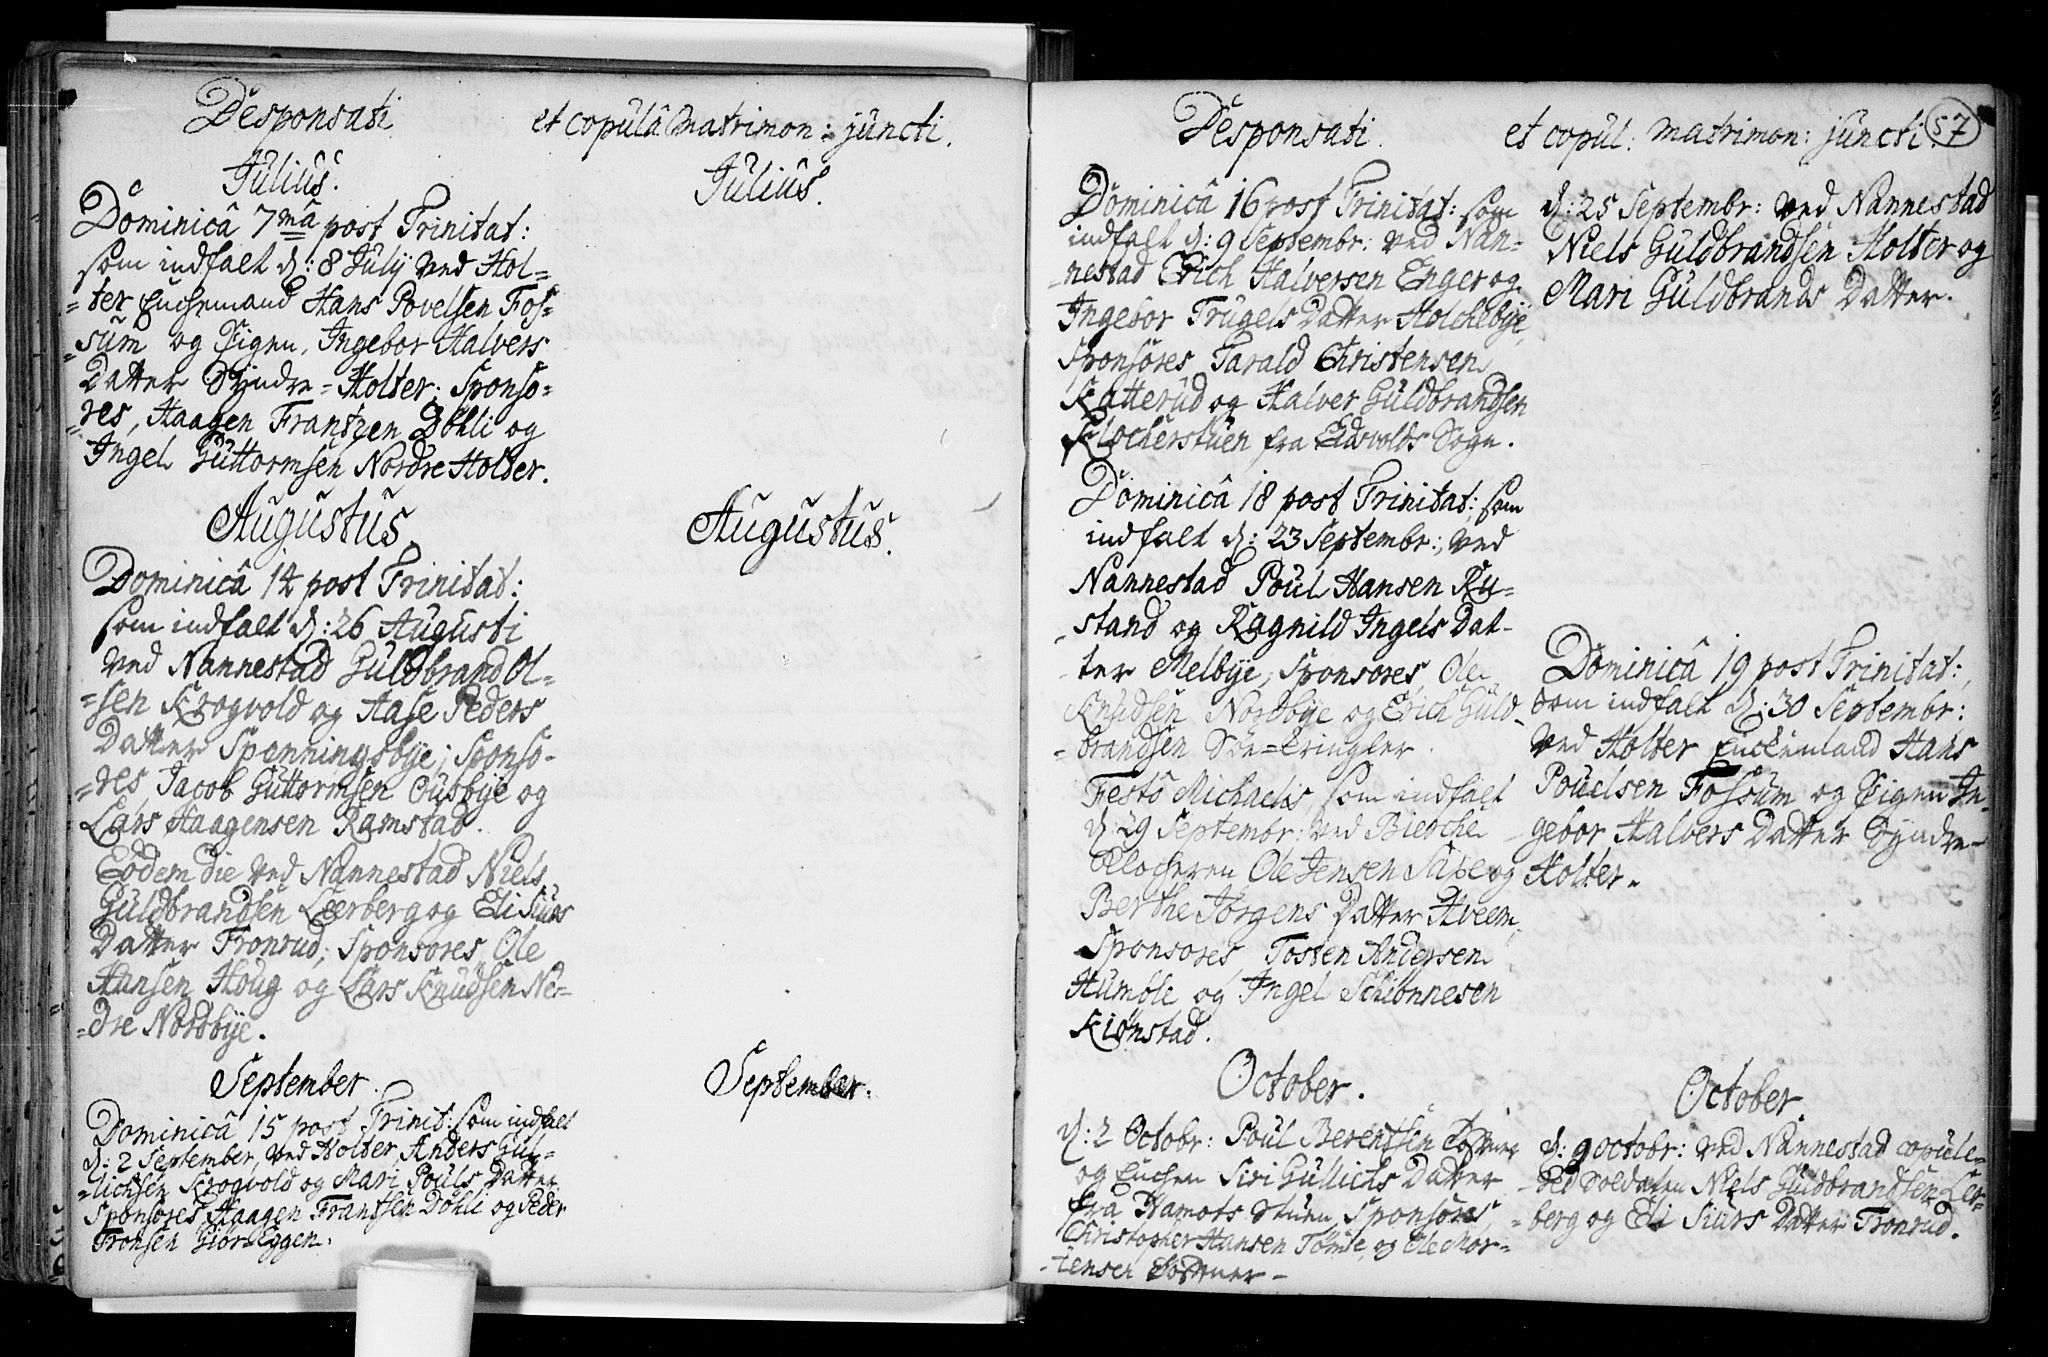 Desponsati
et copulâ matrimon: juncti.
Julius.
Dominicâ 7mâ post Trinitat:
som indfalt d: 8 July ved Hol=
=ter Enchemand Hans Povelsen Fos=
=sum og Pigen, Ingebor Halvers
Datter Syndre=Holter; Sponso=
=res, Haagen Frantzen Döhli og
Ingel Guttormsen Nordre Holter.
Augustus.
Dominicâ 14 post Trinitat:
som indfalt d: 26 Augusti
ved Nannestad Guldbrand Ol=
=sen Krogvold og Aase Peders
Datter Spenningsbye; Sponso=
=res Jacob Guttormsen Ousbye og
Lars Haagensen Ramstad.
Eodem die ved Nannestad Niels
Guldbrandsen Leerberg og Eli Siurs
Datter Fronrud; Sponsores Ole
Hansen Houg og Lars Knudsen Ne=
=dre Nordbye.
September.
Dominicâ 15 post Trinit: som indfalt
d: 2 September, ved Holter, Anders Gul=
=lichsen Krogvold og Mari Pouls Datter
Sponsores Haagen Frantsen Döhli og Peder
Tronsen Giör=Eggen.
Julius.
Augustus.
September.
Desponsati.
et copul: matrimon: juncti.
57
Dominicâ 16 post Trinitat: som
indfalt d: 9 Septembr: ved Nan=
=nestad Erich Halversen Enger og
Ingebor Trugels Datter Holchebye,
Sponsores Tarald Christensen
Katterud og Halver Guldbrandsen
Klocherstuen fra Eidsvolds Sogn.
Dominicâ 18 post Trinitat: som
indfalt d: 23 Septembr:, ved
Nannestad Poul Hansen Ru=
=stand og Ragnild Ingels Dat-
-ter Melbye, Sponsores Ole
Knudsen Nordbye og Erich Guld=
=brandsen Sör=Eringler.
Festô Michaelis, som indfalt
d: 29 Septembr: ved Bierche
Klocheren Ole Jensen Saxe og
Berthe Jörgens Datter Hveem,
Sponsores Tosten Andersen
Humble og Ingel Schiönnesen
Kiönstad.
October.
d: 2 Octobr: Poul Berentsen
og Enchen Siri Gullichs Datter
fra Hamots Stuen, Sponsores,
Christopher Hansen Tömte og Ole Mor=
=tensen
d: 25 Septembr: ved Nannestad
Niels Guldbrandsen Holter og
Mari Guldbrands Datter.
Dominicâ 19 post Trinitat:,
som indfalt d: 30 Septembr:
ved Holter Enchemand Hans
Pouelsen Fossum og Pigen In-
-gebor Halvers Datter Syndre-
Holter.
October.
d: 9 Octobr: ved Nannestad copule=
=red Soldaten Niels Guldbrandsen Ler=
=berg og Eli Siurs Datter Fronrud.